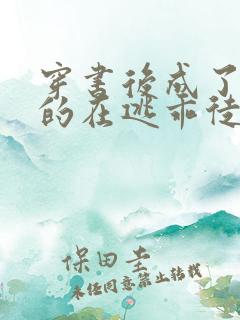 穿书后成了
的在逃乖徒
保田圭
未经同意禁止转载